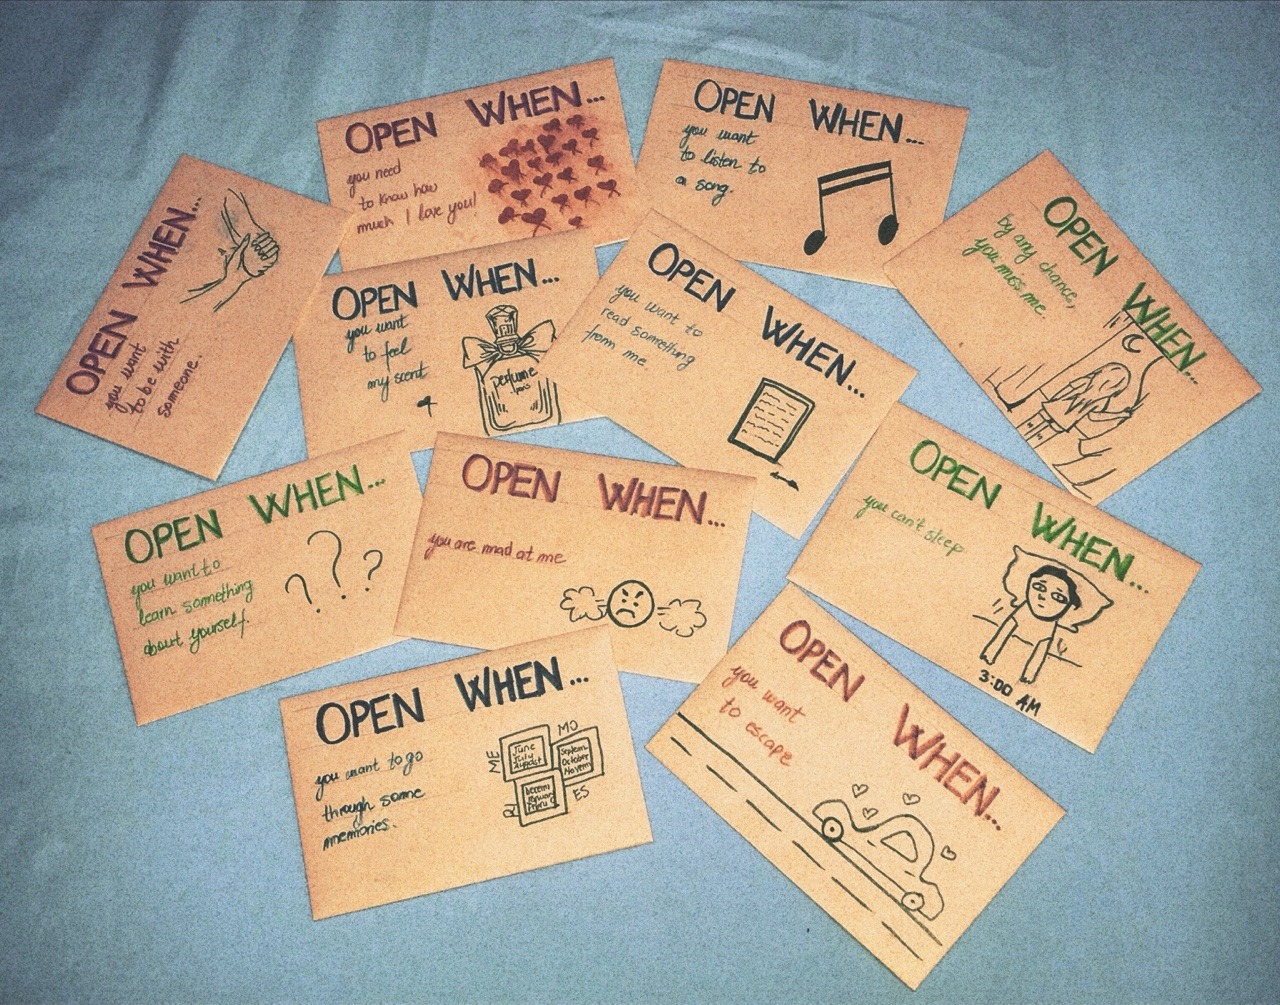 OPEN WHEN...
you need
to know how
much I love you!
OPEN WHEN...
you want
to listen to
a song.
OPEN WHEN...
you want
to be with
someone.
OPEN WHEN...
you want
to feel
my scent
perfume
OPEN WHEN...
you want to
read something
from me
OPEN WHEN...
by any chance,
you miss me.
OPEN WHEN...
you want to
learn something
about yourself.
OPEN WHEN...
you are mad at me
OPEN WHEN...
you can't sleep
3:00 AM
OPEN WHEN...
you want to go
through some
memories.
ME
MO
R
ES
June
July
August
Septem
October
Novem
OPEN WHEN...
you want
to escape